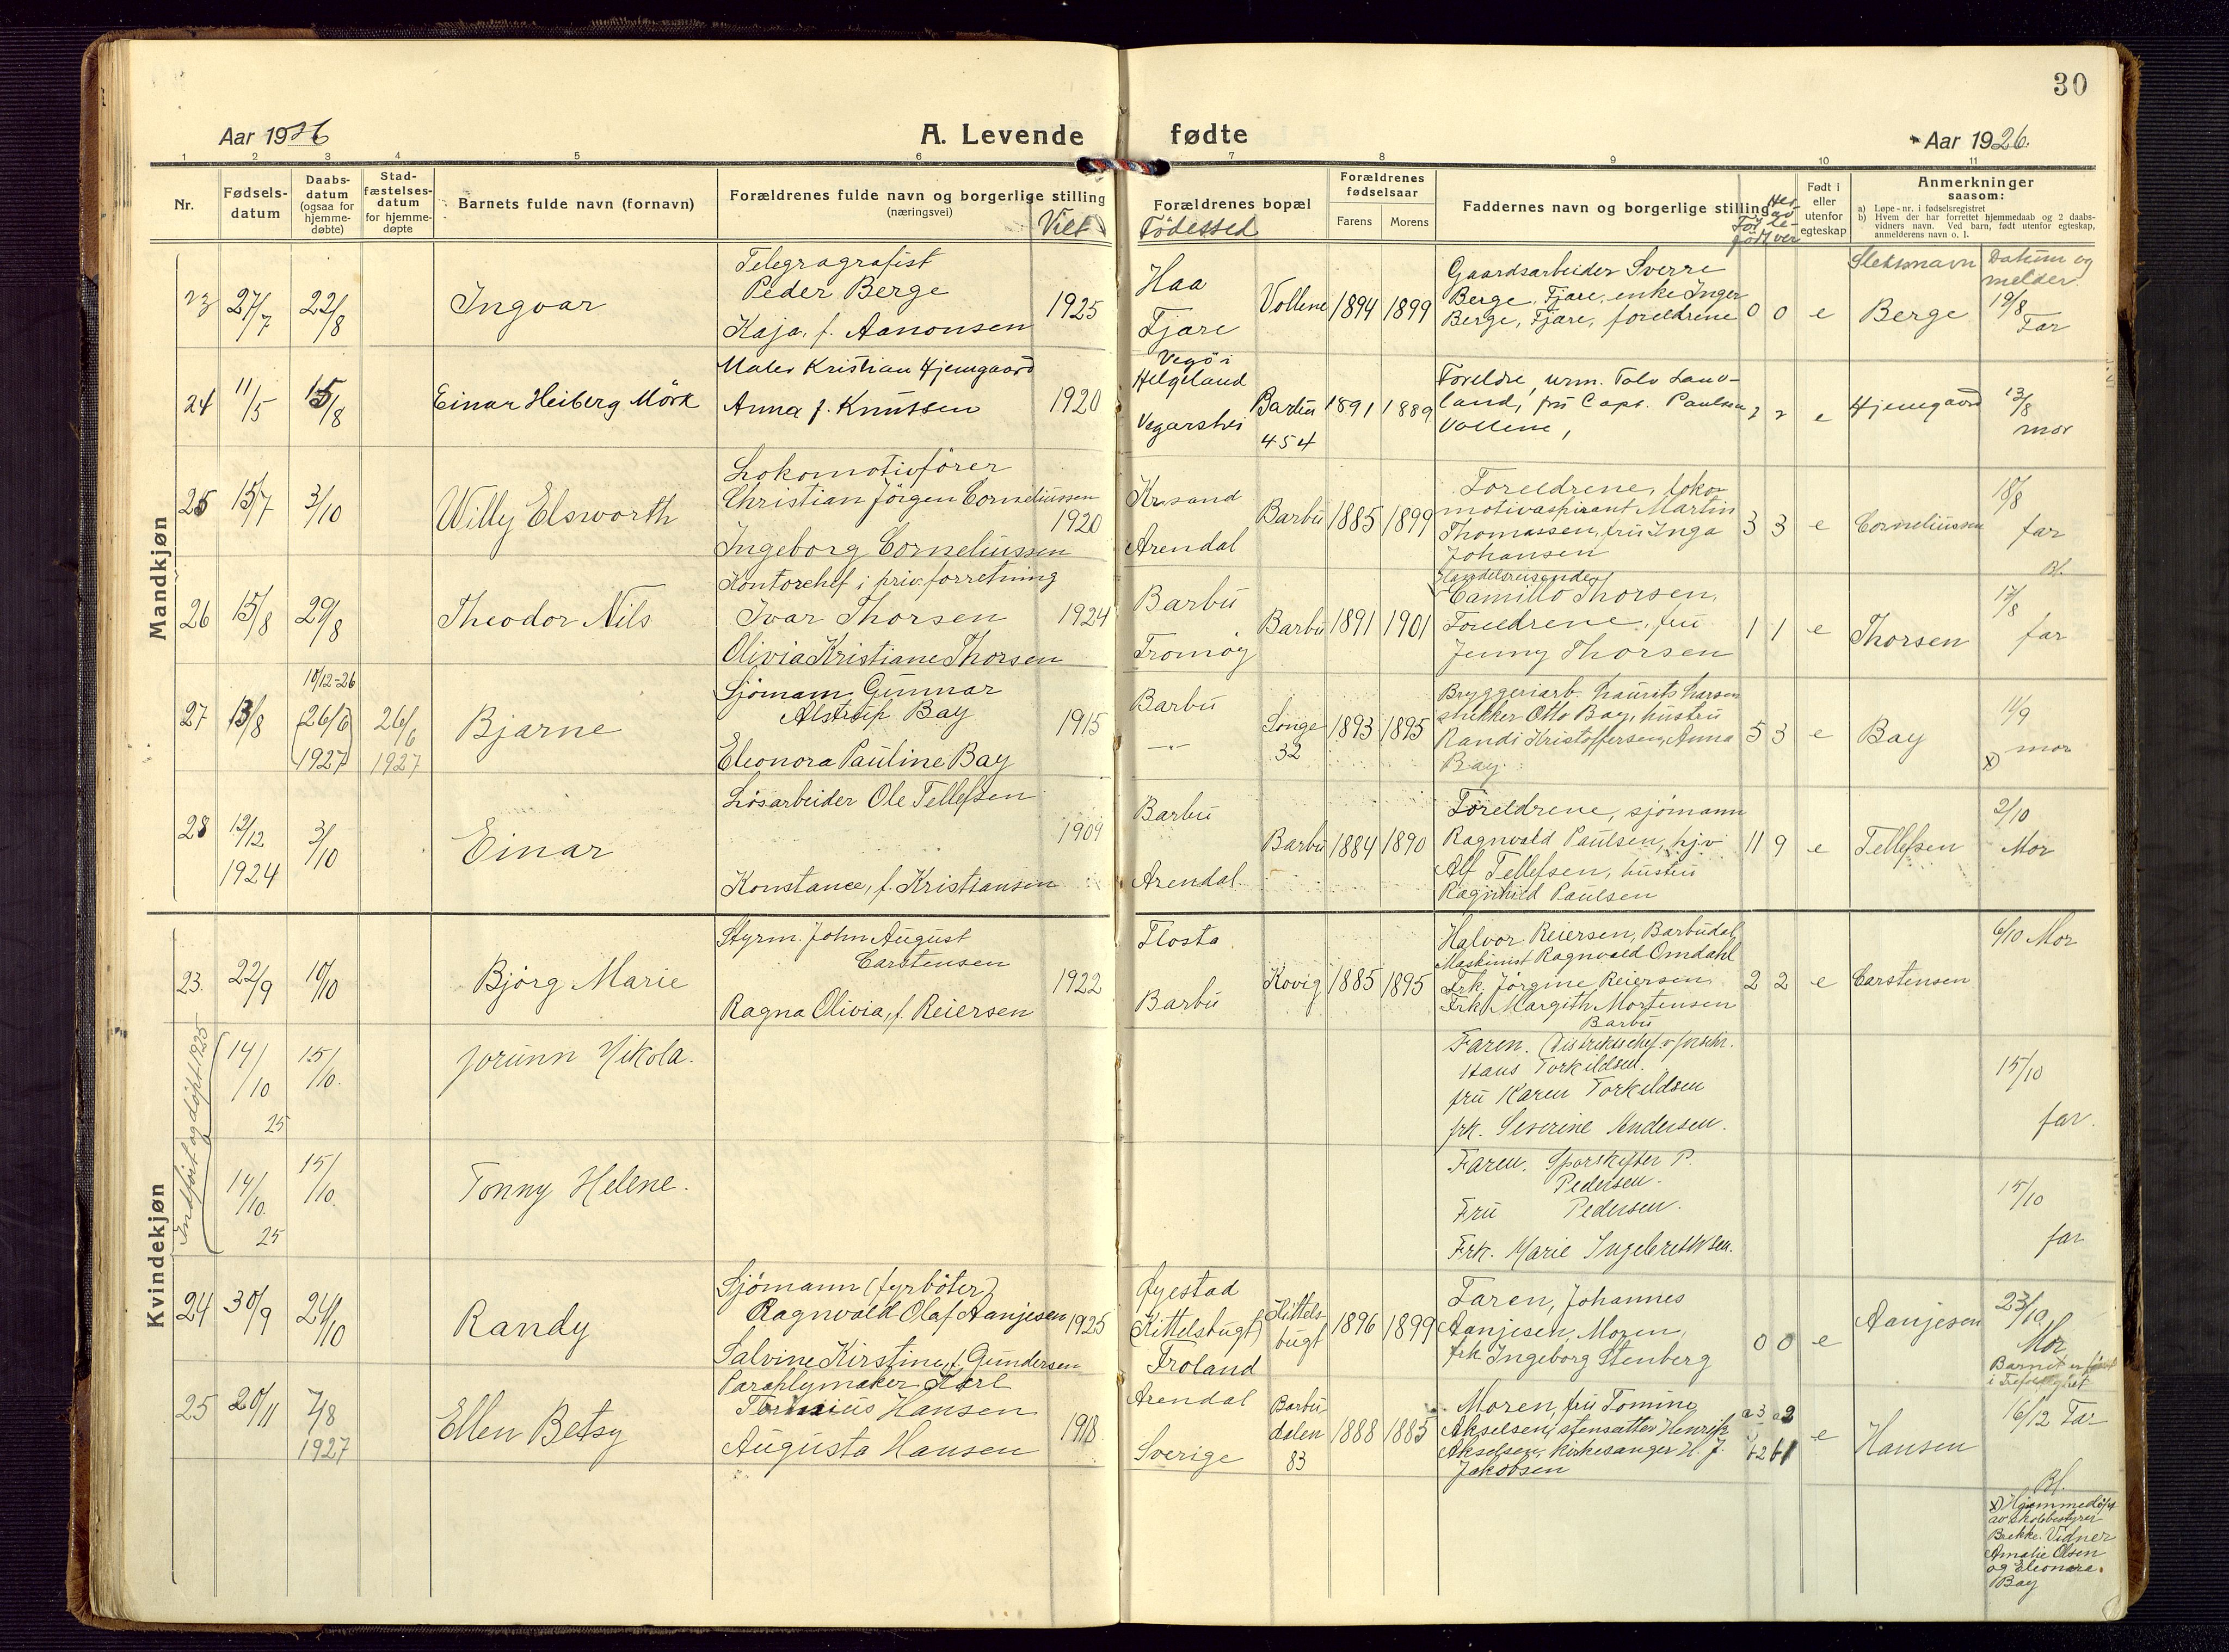 30
Aar 1926
A. Levende fødte
Aar 1926.
1 2 3 4 5 6 7 8 9 10 11
Nr.
Fødsels-
datum
Daabs-
datum
(ogsaa for
hjemme-
døbte)
Stad-
fæstelses-
datum
for hjemme-
døpte
Barnets fulde navn (fornavn)
Forældrenes fulde navn og borgerlige stilling
(næringsvei)
Viet
Forældrenes bopæl
Födested
Forældrenes
fødselsaar
Farens
Morens
Faddernes navn og borgerlige stilling
Før
født
Født i
eller
utenfor
egteskap
Anmerkninger
saasom:
a) Løpe-nr. i fødselsregistret
b) Hvem der har forrettet hjemmedaab og 2 daabs-
vidners navn. Ved barn, født utenfor egteskap,
anmelderens navn o. l.
Slektsnavn
Datum og
melder.
Mandkjøn
23
27/7
22/8
Ingvar
Telegragrafist
Peder Berge
Kaja, f. Aanonsen
1925
Haa
Fjære
Vollene
1894
1899
Gaardsarbeider Sverre
Berge, Fjære, enke Inger
Berge, Fjære, foreldrene
0 0 e
Berge
19/8
Far
24
11/5
15/8
Einar Heiberg Mörk
Maler Kristian Hjemgaard
Anna f. Knutsen
1920
Vegö i
Helgeland
Vegarshei
Barbu
454
1891
1889
Foreldre, urm. Talv Land-
land, fru Capt. Paulsen
Vollene,
2 2 e
Hjemgaard
13/8
mor
25
15/7
3/10
Willy Elsworth
Lokomotivfører
Christian Jörgen Corneliussen
1920
Ingeborg Corneliussen
Kr.sand
Arendal
Barbu
1885
1899
Foreldrene, loko-
motivaspirant Martin
Thomassen, fru Inga
Johansen
3 3 e
Corneliussen
18/8
far
Bl.
26
15/8
29/8
Theodor Nils
Kontorchef i priv. forretning
Ivar Thorsen
1924
Olivia Kristiane Thorsen
Barbu
Tromøy
Barbu
1891
1901
Handelsreisende
Camillo Thorsen,
Foreldrene, fru
Jenny Thorsen
1 1 e
Thorsen
17/8
far
27
13/8
10/12-26
(26/6)
1927
26/6
1927
Bjarne
Sjömann Gunnar
Alstrup Bay
1915
Eleonora Pauline Bay
Barbu
-"-
Songe
32
1893
1895
Bryggeriarb. Laurits Larsen
snekker Otto Bay, hustru
Randi Kristoffersen, Anna
Bay.
5 3 e
Bay
11/9
x) mor
28
12/12
1924
3/10
Einar
Løsarbeider Ole Tellefsen
1909
Konstance, f. Kristiansen
Barbu
Arendal
Barbu
1884
1890
Foreldrene, sjömann
Ragnvald Paulsen, hjv
Alf Tellefsen, hustru
Ragnhild Paulsen
11 9 e
Tellefsen
2/10
Mor
Kvindekjøn
23.
22/9
10/10
Bjørg Marie
Styrm. John August
Carstensen
1922
Ragna Olivia, f. Reiersen
Flosta
Barbu
Kovig
1885
1895
Halvor Reiersen, Barbudal,
Maskinist Ragnvald Omdahl
Frk. Jørgine Reiersen
Frk. Margith Mortensen
Barbu
2 2 e
Carstensen
6/10 Mor
Indført og døpt 1925
14/10
25
15/10.
Jorunn Nikola.
Faren. Distriktschef v. forsikr.
Hans Torkildsen.
fru Karen Torkildsen
frk. Severine Andersen.
15/10
far.
14/10.
25
15/10.
Tonny Helene.
Faren. Sporskifter P.
Pedersen.
Fru Pedersen.
Frk. Marie Ingebrethsen.
15/10
far
24
30/9
24/10
Randy
Sjömann (fyrböter)
Ragnvald Olaf Aanjesen
1925
Salvine Kirstine, f. Gundersen
Øyestad
(Kittelsbugt)
Froland
Kittels-
bugt
1896
1899
Faren, Johannes
Aanjesen, Moren,
frk Ingeborg Stenberg
0 0 e
Aanjesen
23/10.
Mor
Barnet er født
25
20/11
7/8
1927
Ellen Betsy
Paraplymaker Karl
Hansen
1918.
Augusta Hansen
Arendal
Sverige
Barbu-
dalen
83
1888
1885
Moren, fru Tomine
Akselsen, stensætter Henrik
Akselsen, kirkesanger H. J.
Jakobsen
a3 a2
b2 b1
e
Hansen
16/12 Far
Bl.
x) Hjemmedöpt
av skolebestyrer
Brekke. Vidner
Amalie Olsen
og Eleonora
Bay